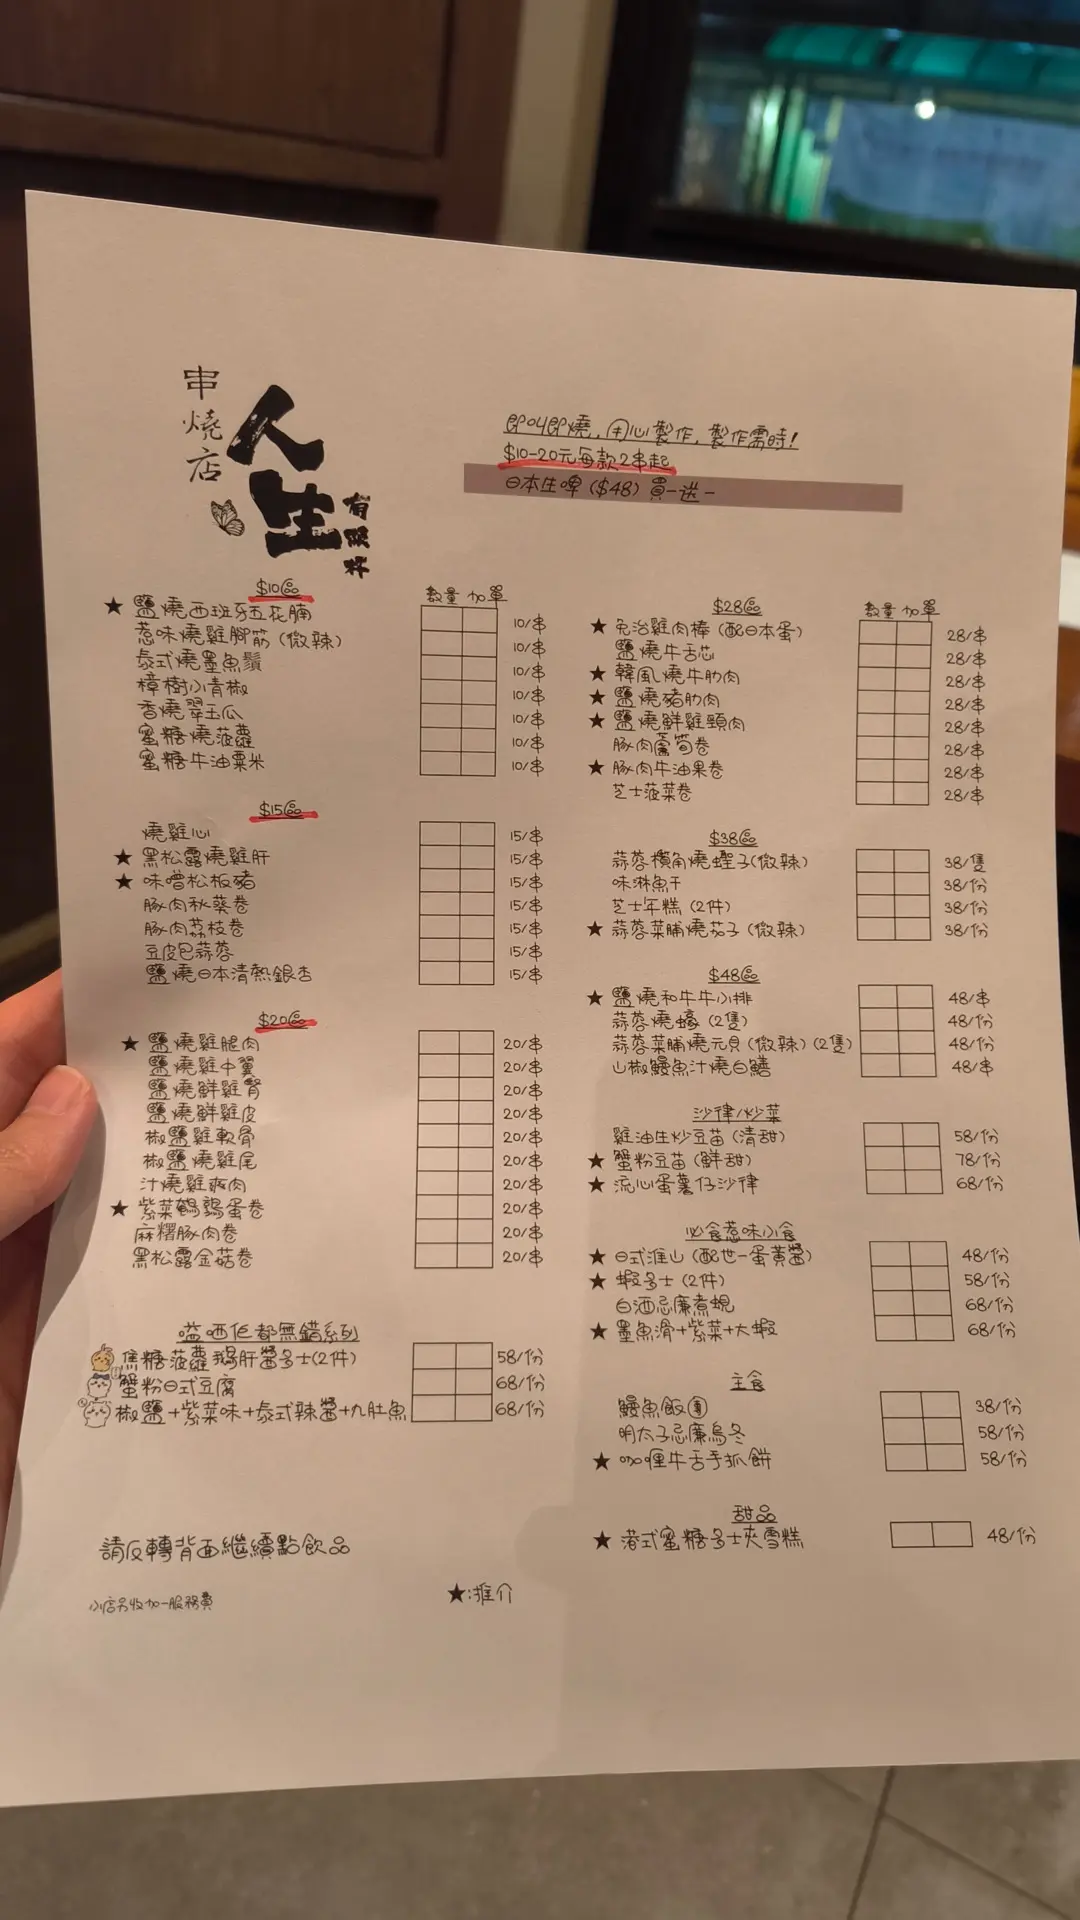 串燒店
人生
有限杯
即叫即燒，用心製作，製作需時！
$10-20元每款2串起
日本生啤（$48）買一送一
$10區
數量 加單
★ 鹽燒西班牙五花腩 10/串
惹味燒雞腳筋（微辣） 10/串
泰式燒墨魚鬚 10/串
樟樹小青椒 10/串
香燒翠玉瓜 10/串
蜜糖燒菠蘿 10/串
蜜糖牛油粟米 10/串
$15區
燒雞心 15/串
★ 黑松露燒雞肝 15/串
★ 味噌松板豬 15/串
豚肉秋葵卷 15/串
豚肉荔枝卷 15/串
豆皮巴蒜蓉 15/串
鹽燒日本清熱銀杏 15/串
$20區
★ 鹽燒雞腿肉 20/串
鹽燒雞中翼 20/串
鹽燒鮮雞腎 20/串
鹽燒鮮雞皮 20/串
椒鹽雞軟骨 20/串
椒鹽燒雞尾 20/串
汁燒雞爽肉 20/串
★ 紫菜鵪鶉蛋卷 20/串
麻糬豚肉卷 20/串
黑松露金菇卷 20/串
嗌哂佢都無錯系列
焦糖菠蘿鵝肝醬多士(2件) 58/份
蟹粉日式豆腐 68/份
椒鹽+紫菜味+泰式辣醬+九肚魚 68/份
請反轉背面繼續點飲品
小店另收加一服務費
★:推介
$28區
數量 加單
★ 免治雞肉棒（配日本蛋） 28/串
鹽燒牛舌芯 28/串
★ 韓風燒牛肋肉 28/串
★ 鹽燒豬肋肉 28/串
★ 鹽燒鮮雞頸肉 28/串
豚肉蘆筍卷 28/串
★ 豚肉牛油果卷 28/串
芝士菠菜卷 28/串
$38區
蒜蓉欖角燒蟶子(微辣） 38/隻
味淋魚干 38/份
芝士年糕（2件） 38/份
★ 蒜蓉菜脯燒茄子（微辣） 38/份
$48區
★ 鹽燒和牛牛小排 48/串
蒜蓉燒蠔（2隻） 48/份
蒜蓉菜脯燒元貝（微辣）（2隻） 48/份
山椒鰻魚汁燒白鱔 48/串
沙律/炒菜
雞油生炒豆苗（清甜） 58/份
★ 蟹粉豆苗（鮮甜） 78/份
★ 流心蛋薯仔沙律 68/份
必食惹味小食
★ 日式淮山（配世一蛋黃醬） 48/份
★ 蝦多士（2件） 58/份
白酒忌廉煮蜆 68/份
★ 墨魚滑+紫菜+大蝦 68/份
主食
鰻魚飯團 38/份
明太子忌廉烏冬 58/份
★ 咖喱牛舌手抓餅 58/份
甜品
★ 港式蜜糖多士夾雪糕 48/份